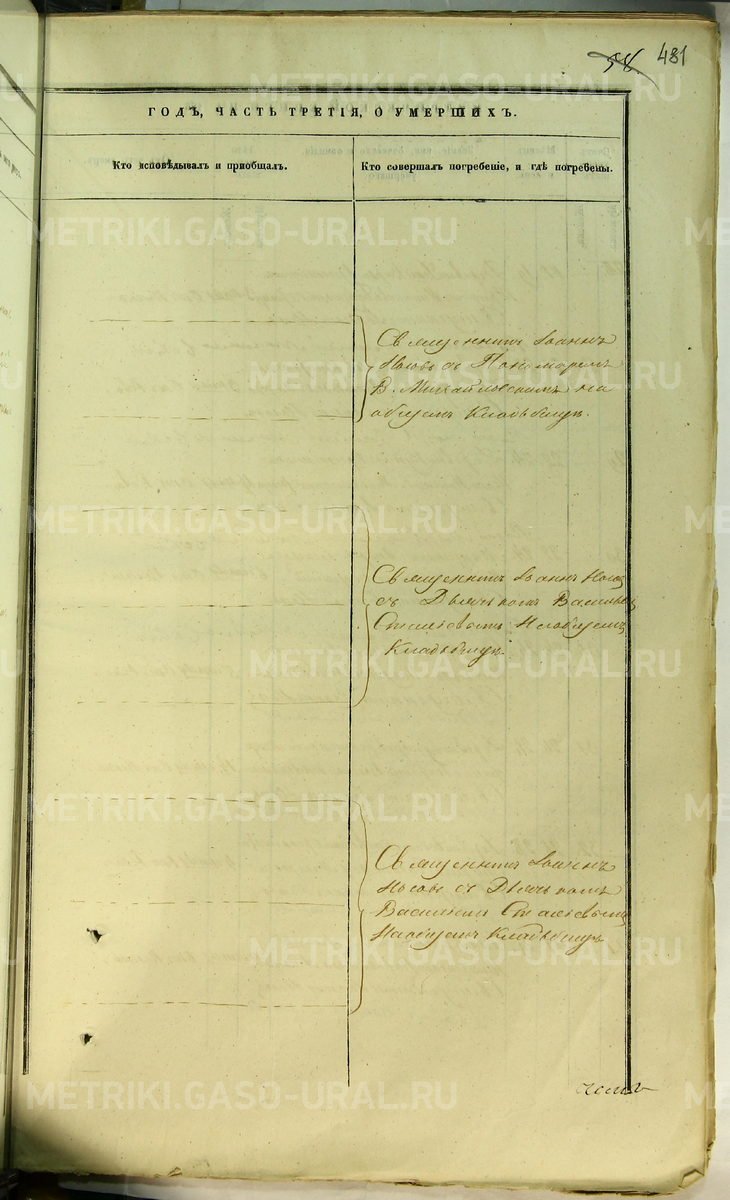 58. 481
ГОДЪ, ЧАСТЬ ТРЕТІЯ, О УМЕРШИХЪ.
Кто исповѣдывалъ и пріобщалъ.
Кто совершалъ погребеніе, и гдѣ погребены.
Священникъ Іоаннъ
Носовъ съ Пономаремъ
В. Михайловскимъ на
общемъ Кладбищѣ.
Священникъ Іоаннъ
съ Дьячкомъ
Наобщемъ
Кладбищѣ.
Священникъ Іоаннъ
Носовъ съ Дьячкомъ
Василіемъ
Наобщемъ Кладбищѣ
METRIKI.GASO-URAL.RU